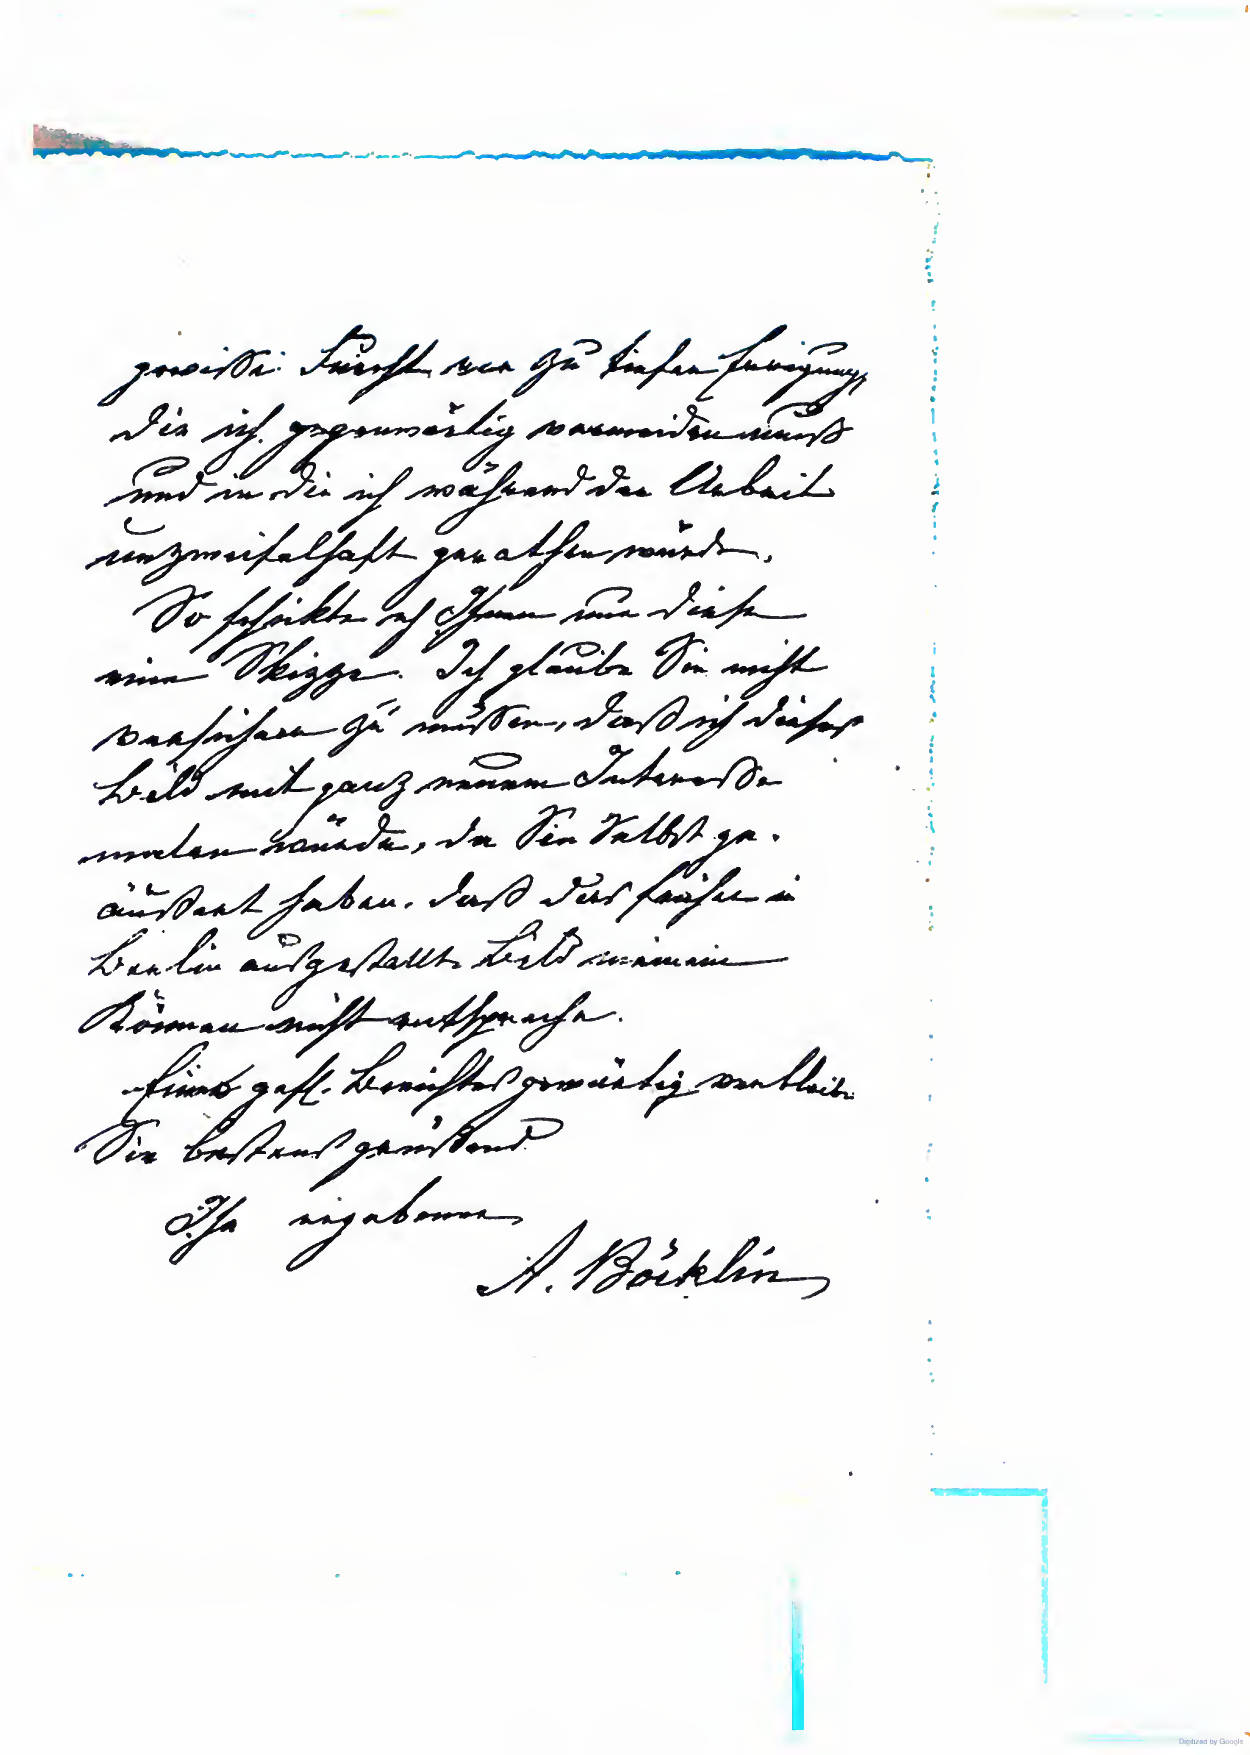 gewisse Furcht vor zu tiefer Erregung,
die ich gegenwärtig vermeiden muß
und in die ich während der Arbeit
unzweifelhaft gerathen würde.
So schickte ich Ihnen nur diese
eine Skizze. Ich glaube Sie nicht
versichern zu müssen, daß ich dieses
Bild mit ganz neuem Interesse
malen würde, da Sie Selbst ge-
äußert haben, daß das früher in
Berlin ausgestellte Bild meinem
Können nicht entspreche.
Ihres gefl. Berichtes gewärtig verbleibe
Sie bestens grüßend
Ihr ergebener
A. Böcklin
Digitized by Google